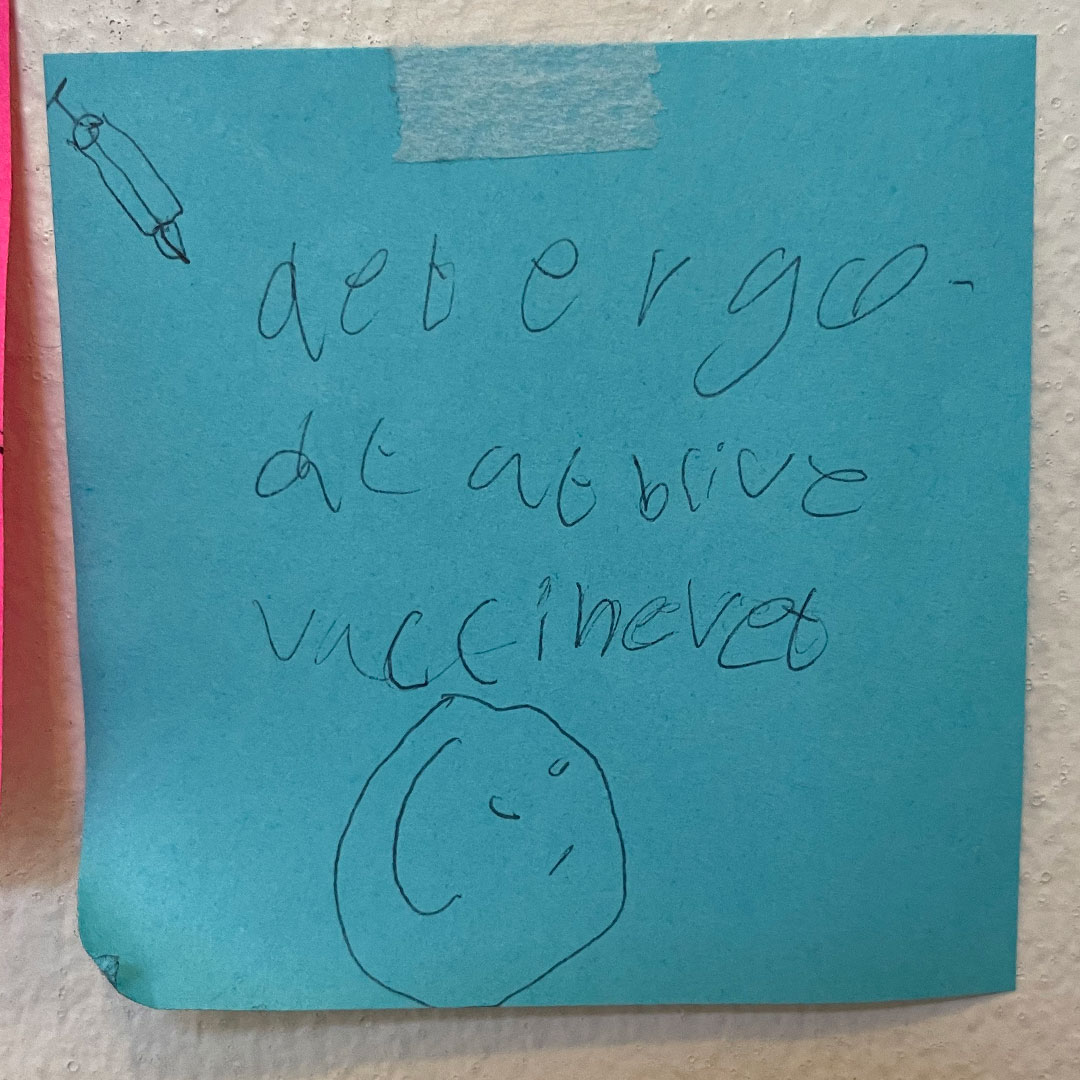 det er go-
dt at blive
vaccineret